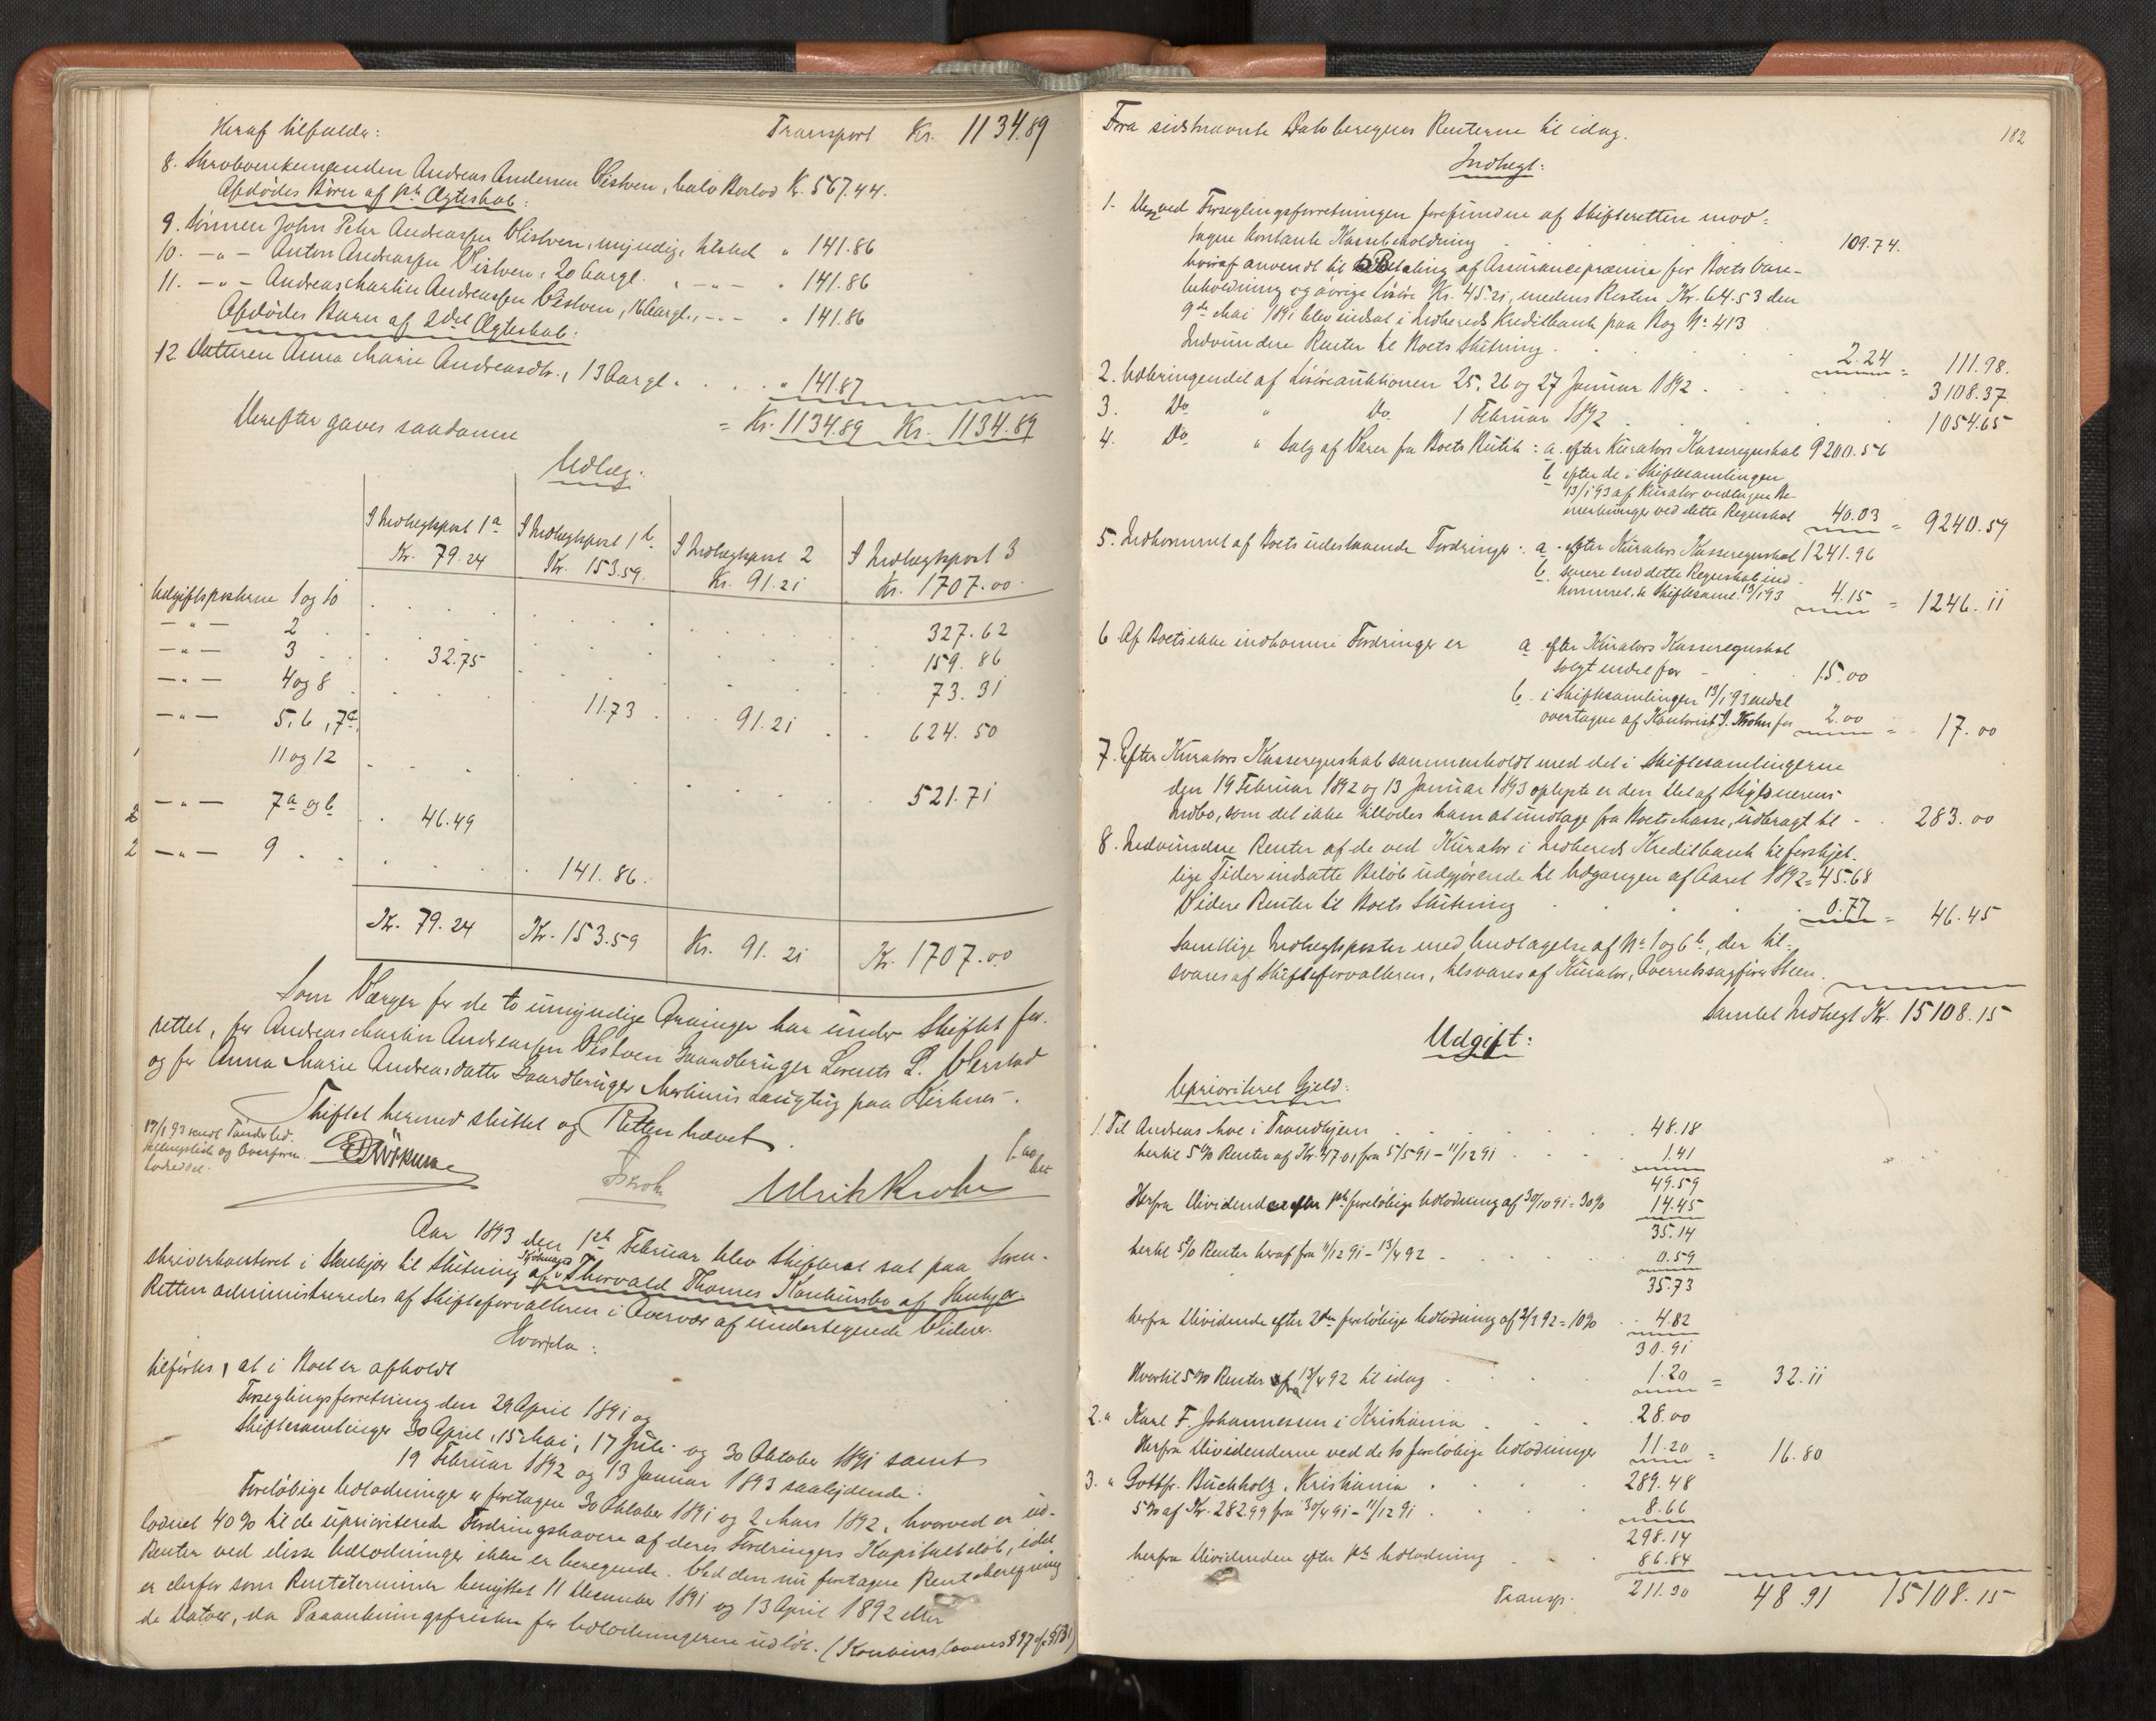 Heraf tilfalder: Transport Kr. 1134.89
8. Andreas Andersen Vistven, halv Boslod Kr. 567.44.
Afdødes Børn af 1ste Ægteskab:
9. Sønnen John Peter Andreassen Vistven, myndig, tilsted " 141.86
10. -"- Anton Andreassen Vistven, 20 Aar gl. " -"- " 141.86
11. -"- Andreas Martin Andreassen Vistven, 16 Aar gl., -"- " 141.86
Afdødes Barn af 2det Ægteskab:
12 Datteren Anna Marie Andreasdtr., 13 Aar gl. . . . " 141.87
= Kr. 1134.89 Kr. 1134.89
Derefter gaves saadanne
Udlæg:
I Indtegtspost 1a I Indtegtspost 1b I Indtegtspost 2 I Indtegtspost 3
Kr. 79.24 Kr. 153.59. Kr. 91.21 Kr. 1707.00
Udgiftsposterne 1 og 10 327.62
-"- 2 159.86
-"- 3 32.75 73.31
-"- 4 og 8 11.73 91.21 624.50
-"- 5, 6, 7c,
11 og 12 521.71
-"- 7a og b 46.49
-"- 9 141.86.
Kr. 79.24 Kr. 153.59 Kr. 91.21 Kr. 1707.00
Som Værger for de to umyndige Arvinger har under Skiftet for-
rettet, for Andreas Martin Andreassen Vistven Gaardbruger Lorents L. Verstad
og for Anna Marie Andreasdatter Gaardbruger paa Kirknes.
Skiftet hermed sluttet og Retten hævet.
17/1 93 sendt
og Overform.
Ulrik Krohn
Aar 1893 den 1ste Februar blev Skifteret sat paa Soren-
skriverkontoret i Stenkjær til Slutning af Thorvald Thomes Konkursbo af Stenkjær
Retten administreredes af Skifteforvalteren i Overvær af undertegnede Vidner.
Hvorda:
tilførtes, at i Boet er afholdt
Forseglingsforretning den 29 April 1891 og
Skiftesamlinger 30 April, 15 Mai, 17 Juli og 30 Oktober 1891 samt
19 Februar 1892 og 13 Januar 1893 saalydende:
Foreløbige Udlodninger er foretagne 30 Oktober 1891 og 2 Mars 1892, hvorved er ud-
loddet 40% til de uprioriterede Fordringshavere af deres Fordringers Kapitalbeløb, idet
Renter ved disse Udlodninger ikke er beregnede. Ved den nu foretagne Renteberegning
er derfor som Rentetermin benyttet 11 December 1891 og 13 April 1892 eller
de Datoer, da Paaankningsfristen for Udlodningerne udløb. (Konkurslovens § 97 cfr § 131)
182
Fra sidstnævnte Dato beregnes Renterne til idag.
Indtegt:
1. Den ved Forseglingsforretningen forefundne af Skifteretten mod-
tagne kontante Kassebeholdning 109.74.
hvoraf anvendt til Betaling af Assurancepræmie for Boets Vare-
beholdning og øvrige Løsøre Kr. 45.21, medens Resten Kr. 64.53 den
9de Mai 1891 blev indsat i Indhereds Kreditbank paa Bog No 413
Indvundne Renter til Boets Slutning. 2.24 = 111.98.
2. Udbringendet af Løsøreauktionen 25, 26 og 27 Januar 1892 . 3108.37
3. Do " Do 1 Februar 1892 . 1054.65
4. Do " Salg af Varer fra Boets Butik: a. efter Kurators Kasseregnskab 9200.56
b efter de i Skiftesamlingen
13/1 93 af Kurator vedtagne Be-
merkninger ved dette Regnskab 40.03 = 9240.59
5. Indkommet af Boets udestaaende Fordringer: a. efter Kurators Kasseregnskab 1241.96
b. senere end dette Regnskab ind-
kommet, se Skiftesaml. 13/1 93 4.15 = 1246.11
6. Af Boets ikke indkomne Fordringer er a. efter Kurators Kasseregnskab
solgt endel for - 15.00
b. i Skiftesamlingen 13/1 93 endel
overtagne af Kontorist J. Krohn for 2.00 = 17.00
7. Efter Kurators Kasseregnskab sammenholdt med det i Skiftesamlingerne
den 19 Februar 1892 og 13 Januar 1893 oplyste er den Del af Skyldnerens
Indbo, som det ikke tillodes ham at undtage fra Boets Masse, udbragt til . . 283.00
8. Indvundne Renter af de ved Kurator i Indhereds Kreditbank til forskjel-
lige Tider indsatte Beløb udgjørende til Udgangen af Aaret 1892 = 45.68
Videre Renter til Boets Slutning 0.77 = 46.45
Samtlige Indtegtsposter med Undtagelse af No 1 og 6b, der til-
svares af Skifteforvalteren, tilsvares af Kurator, Overretssagfører Steen.
Samlet Indtegt Kr. 15108.15
Udgift:
Uprioriteret Gjeld:
1. Til Andreas Moe i Trondhjem 48.18
hertil 5% Renter af Kr. 47.01 fra 5/5 91 - 11/12 91 1.41
49.59
Herfra Dividende efter 1ste foreløbige Udlodning af 30/10 91 = 30% 14.45
35.14
hertil 5% Renter heraf fra 11/12 91 - 13/4 92 - 0.59
35.73
herfra Dividende efter 2den foreløbige Udlodning af 2/3 92 = 10% 4.82
30.91
Hvortil 5% Renter fra 13/4 92 til idag . 1.20 = 32.11
2. " Karl F. Johannessen i Kristiania 28.00
Herfra Dividenderne ved de to foreløbige Udlodninger 11.20 = 16.80
3. " Gottfr. Buchholz, Kristiania 289.48
5% af Kr. 282.99 fra 30/4 91 - 11/12 91 8.66
298.14
herfra Dividenden efter 1ste Udlodning 86.84
Transp. 211.30 48.91 15108.15